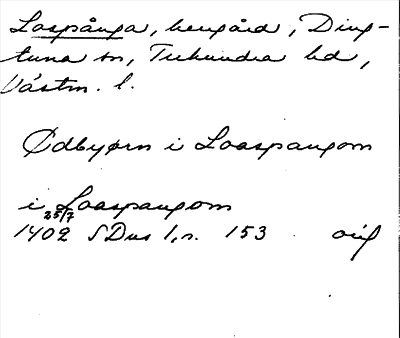 Lospånga, herrgård, Ding-
tuna sn, Tuhundra hd,
Västm. l.
Ødbyørn i Loaspangom
i Loaspangom
25/7
1402 SDns 1, s. 153 orig